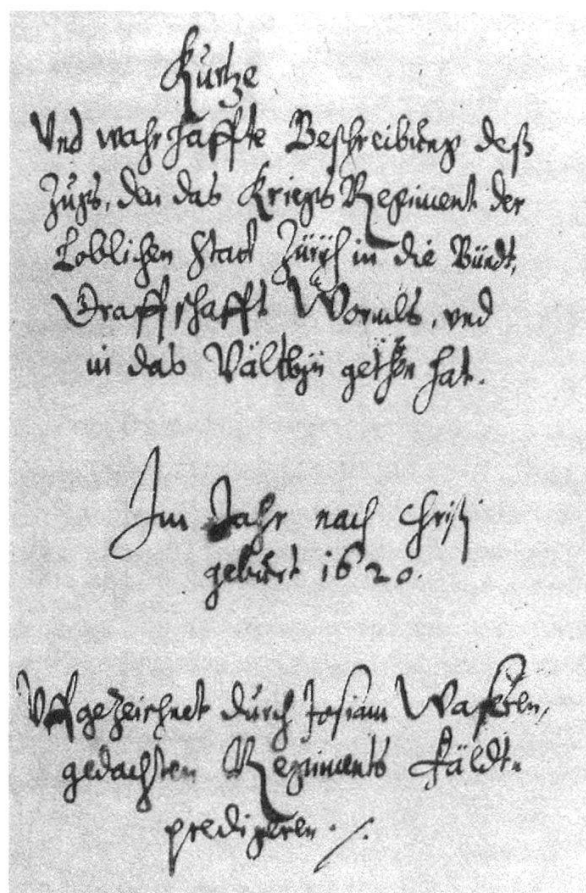 Kurtze
Vnd wahrhaffte Beschreibung deß
Zugs, den das Kriegs Regiment der
Loblichen Statt Zürych in die Bündt,
Graffschafft Wormbs, vnd
in das Vältlyn gethon hat.
Im Jahr nach Christi
geburt 1620.
Vffgezeichnet durch Josiam Waseren,
gedachten Regiments Fäldt-
predigeren ./.